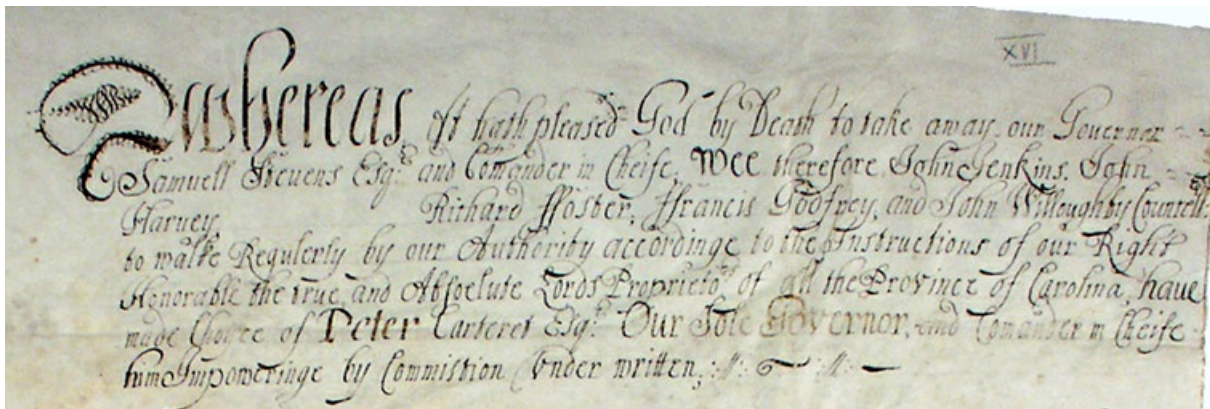 XVI
Whereas, It hath pleased God by Death to take away our Governor
Samuell Stevens Esqr. and Comander in Cheife, Wee therefore John Jenkins, John
Harvey, Richard ffoster, ffrancis Godfrey, and John Willoughby Councell:
to walke Regulerly by our Authority accordinge to the Instructions of our Right
Honorable the true and Absoelute Lords Proprietors of all the Province of Carolina, have
made Choice of Peter Carteret Esqr. Our Sole Governor, and Comander in Cheife
Impoweringe by Commistion Under written,